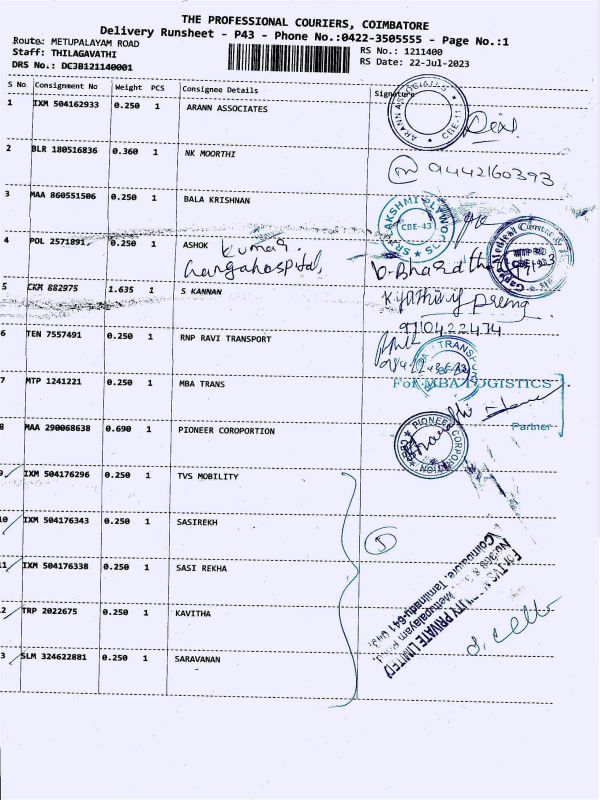 THE PROFESSIONAL COURIERS, COIMBATORE
Delivery Runsheet - P43 - Phone No.:0422-3505555 - Page No.:1
Route: METUPALAYAM ROAD
RS No.: 1211400
Staff: THILAGAVATHI
RS Date: 22-Jul-2023
DRS No.: DCJB121140001
S No. Consignment No Weight PCS Consignee Details Signature
1 IXM 504162933 0.250 1 ARANN ASSOCIATES
ARANN ASSOCIATES CBE-11
2 BLR 180516836 0.360 1 NK MOORTHI
9442160393
3 MAA 860551506 0.250 1 BALA KRISHNAN
SRI LAKSHMI PLYWOODS CBE-43
4 POL 2571891 0.250 1 ASHOK Kumar.
Gangahospital,
5 CKM 882975 1.635 1 S KANNAN
6 TEN 7557491 0.250 1 RNP RAVI TRANSPORT
7 MTP 1241221 0.250 1 MBA TRANS
For MBA LOGISTICS
Partner
8 MAA 290068638 0.690 1 PIONEER COROPORTION
PIONEER CORPORATION
9 IXM 504176296 0.250 1 TVS MOBILITY
10 IXM 504176343 0.250 1 SASIREKH
5
11 IXM 504176338 0.250 1 SASI REKHA
12 TRP 2022675 0.250 1 KAVITHA
13 SLM 324622881 0.250 1 SARAVANAN
PRIVATE LIMITED
Mettupalayam Road,
Coimbatore, Tamilnadu-641 043.